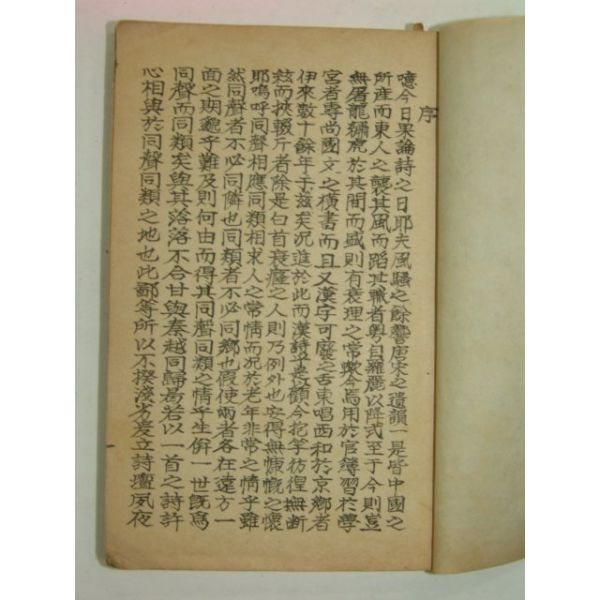 序
噫今日果論詩之日耶夫風騷之餘響唐宋之遺韻一是皆中國之
所産而東人之襲其風而蹈其職者粤自羅麗以降式至于今則豈
無屠龍繡虎於其間而盛則有衰理之常歟今焉用於官簿習於學
宮者專尚國文之橫書而且又漢字可廢之舌東唱西和於京鄉者
伊來數十餘年于玆矣況進於此而漢詩乎是以顧今抱竽彷徨無斷
玆而挾輟斤者除是白首衰癃之人則乃例外也安得無慷慨之懷
耶嗚呼同聲相應同類相求人之常情而況於老年非常之情乎雖
然同聲者不必同隣也同類者不必同鄉也假使兩者各在遠方一
面之期龜乎難及則何由而得其同聲同類之情乎生倂一世旣爲
同聲而同類矣與其落落不合甘與秦越同歸曷若以一首之詩許
心相與於同聲同類之地也此鄙等所以不揆淺劣爰立詩壇夙夜